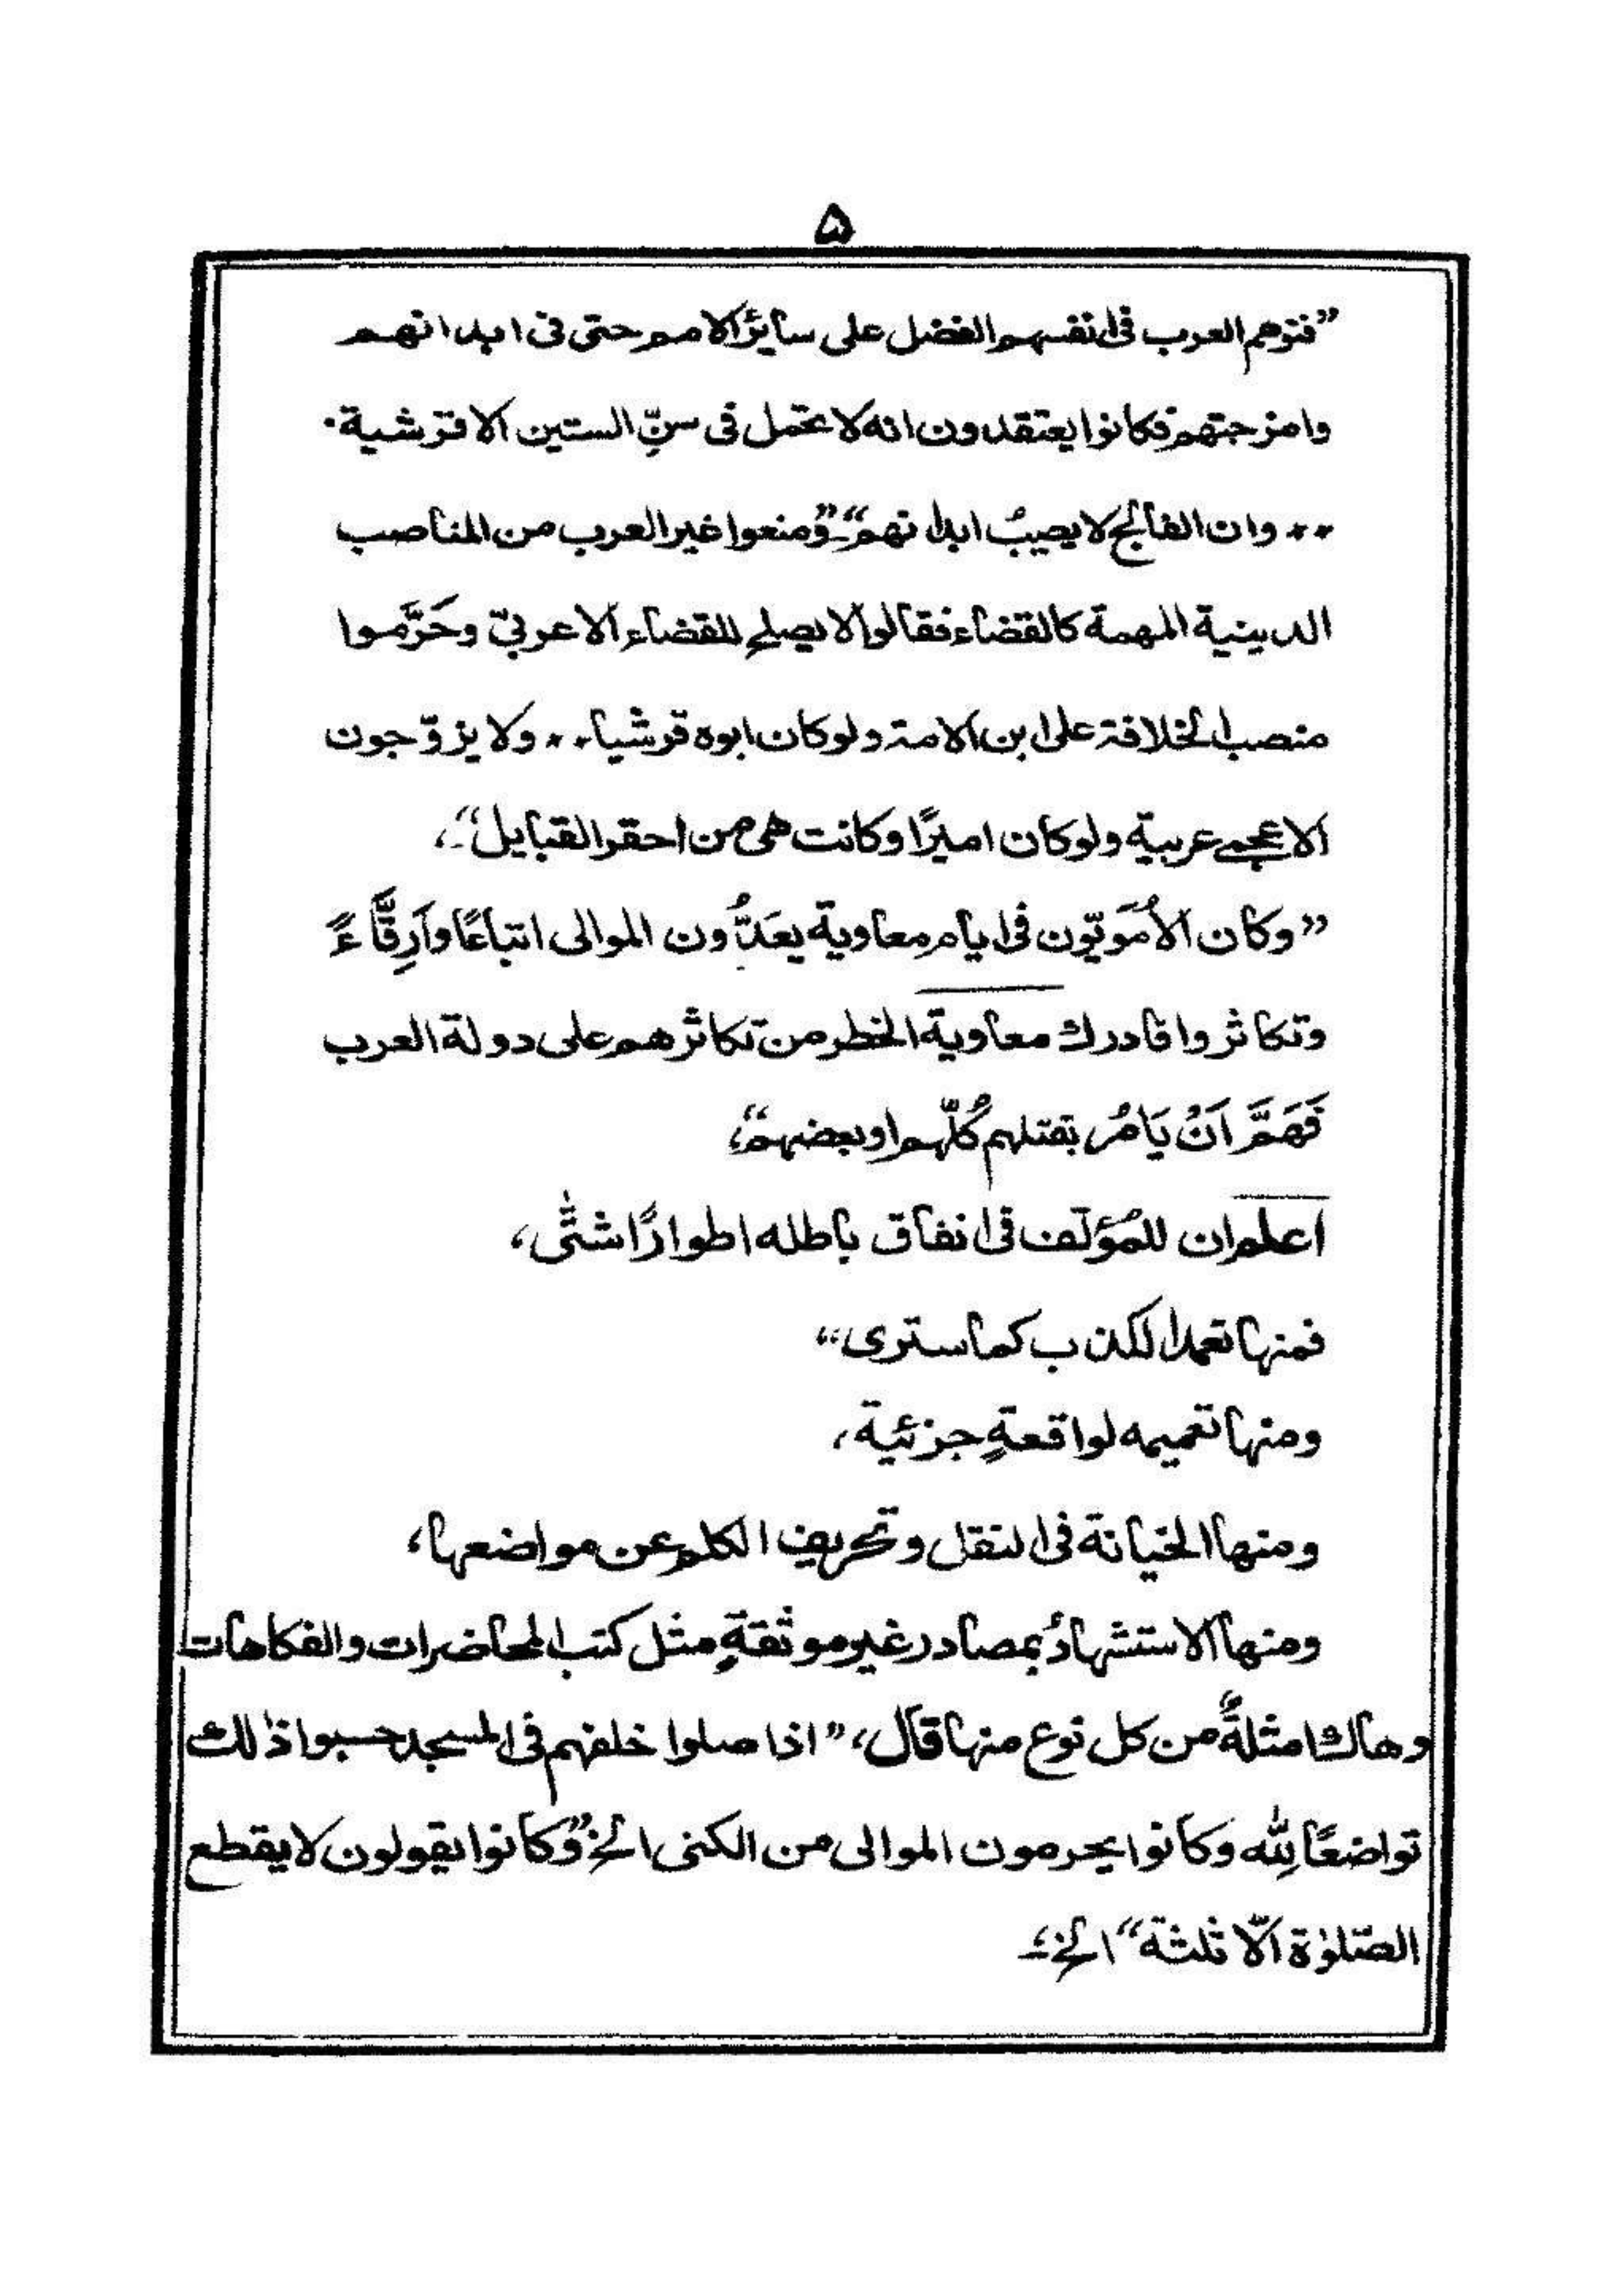 ۵
”فتوهم العرب فى انفسهم الفضل على سائر الامم حتى فى ابدانهم
وامزجتهم فكانوا يعتقدون انه لا تحمل فى سنّ الستين الا قرشية۰
۰۰ وان الفالج لا يصيبُ ابدانهم“ ”ومنعوا غير العرب من المناصب
الدينية المهمة كالقضاء فقالوا لا يصلح للقضاء الا عربيّ وحَرَّموا
منصب الخلافة على ابن الامة ولو كان ابوه قرشيا ۰۰ ولا يزوّجون
الاعجمي عربية ولو كان اميرًا وكانت هى من احقر القبايل“،
”وكان الأُمَويّون فى ايام معاوية يعَدُّون الموالى اتباعًا وآرِقَّاءً
وتكاثروا فادرك معاوية الخطر من تكاثرهم على دولة العرب
فَهَمَّ اَنْ يَامُر بقتلهم كُلّهم او بعضهم“،
اعلم ان للمُؤلّف فى انفاق باطله اطوارًا شتّٰى،
فمنها تعمد الكذب كما سترى،،
ومنها تعميمه لواقعةٍ جزئية،
ومنها الخيانة فى النقل وتحريف الكلم عن مواضعها،
ومنها الاستشهادُ بمصادر غير موثقةٍ مثل كتب المحاضرات والفكاهات
وهاك امثلةً من كل نوع منها قال، ”اذا صلوا خلفهم فى المسجد حسبوا ذٰلك
تواضعًا لِلّٰه وكانوا يحرمون الموالى من الكنى الخ“ ”وكانوا يقولون لا يقطع
الصّلوٰة الّا ثلثة“ الخ،